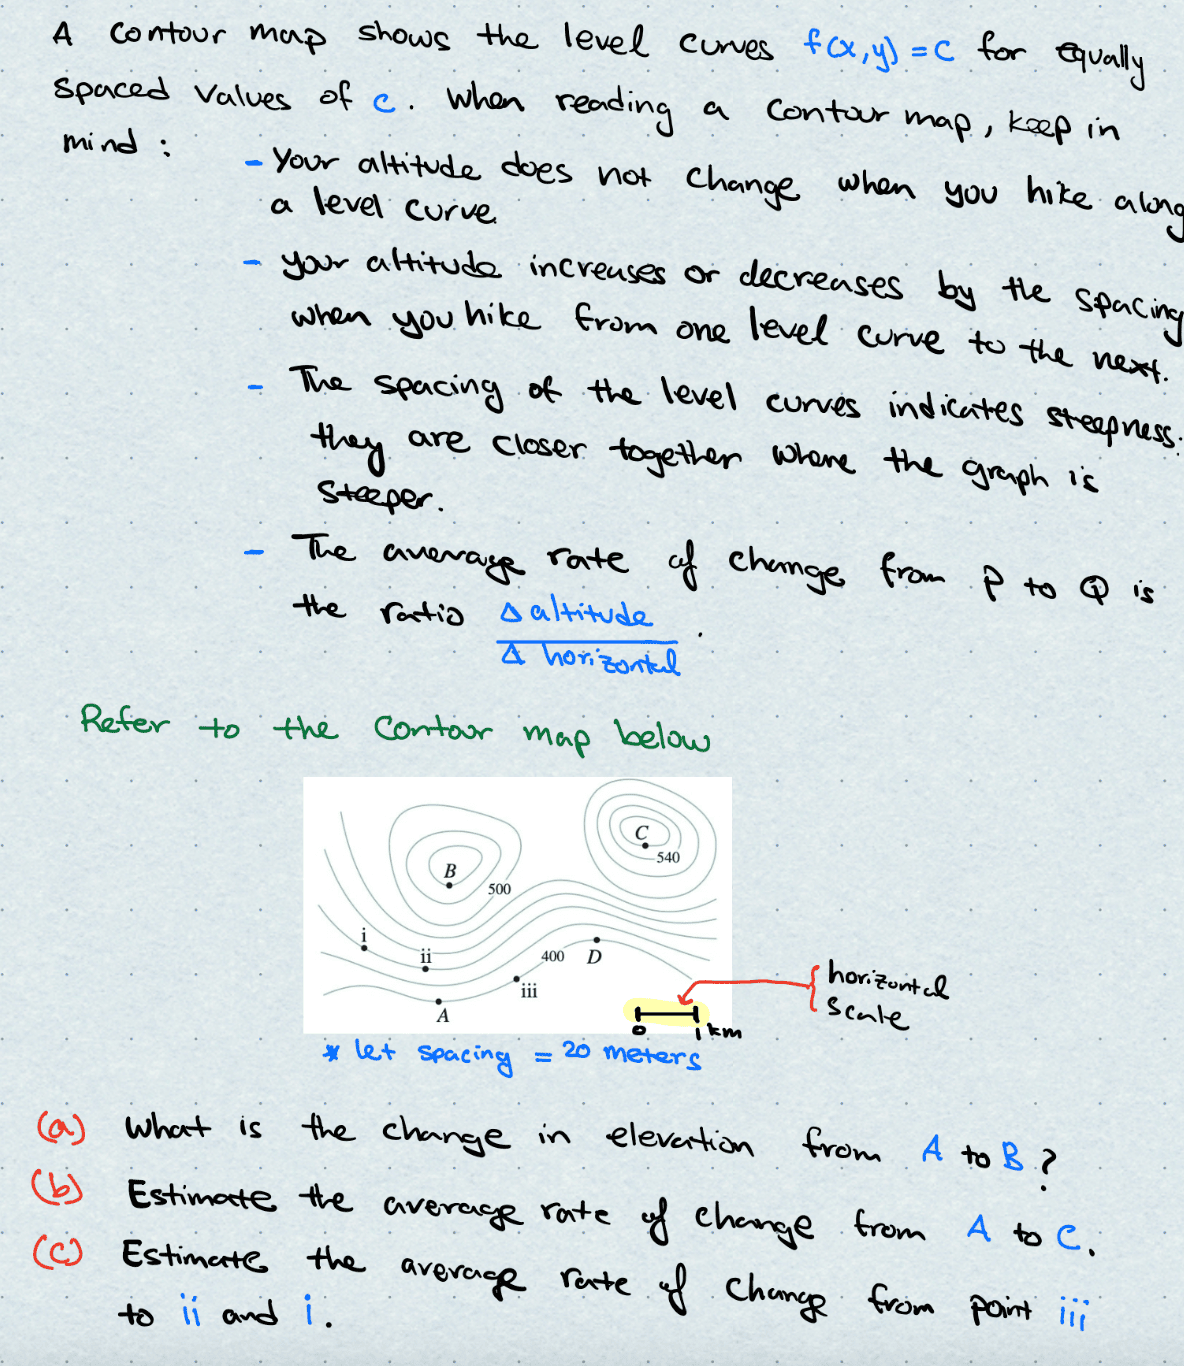 A contour map shows the level curves f(x,y) = C for equally
spaced values of c. When reading a contour map, keep in
mind :
- Your altitude does not change when you hike along
a level curve.
- your altitude increases or decreases by the spacing
when you hike from one level curve to the next.
- The spacing of the level curves indicates steepness.
they are closer together where the graph is
steeper.
- The average rate of change from P to Q is
the ratio Δ altitude / Δ horizontal .
Refer to the contour map below
C
540
B
500
i
ii
400 D
iii
A
horizontal
scale
0 1 km
* let spacing = 20 meters
(a) What is the change in elevation from A to B ?
(b) Estimate the average rate of change from A to C.
(c) Estimate the average rate of change from point iii
to ii and i.